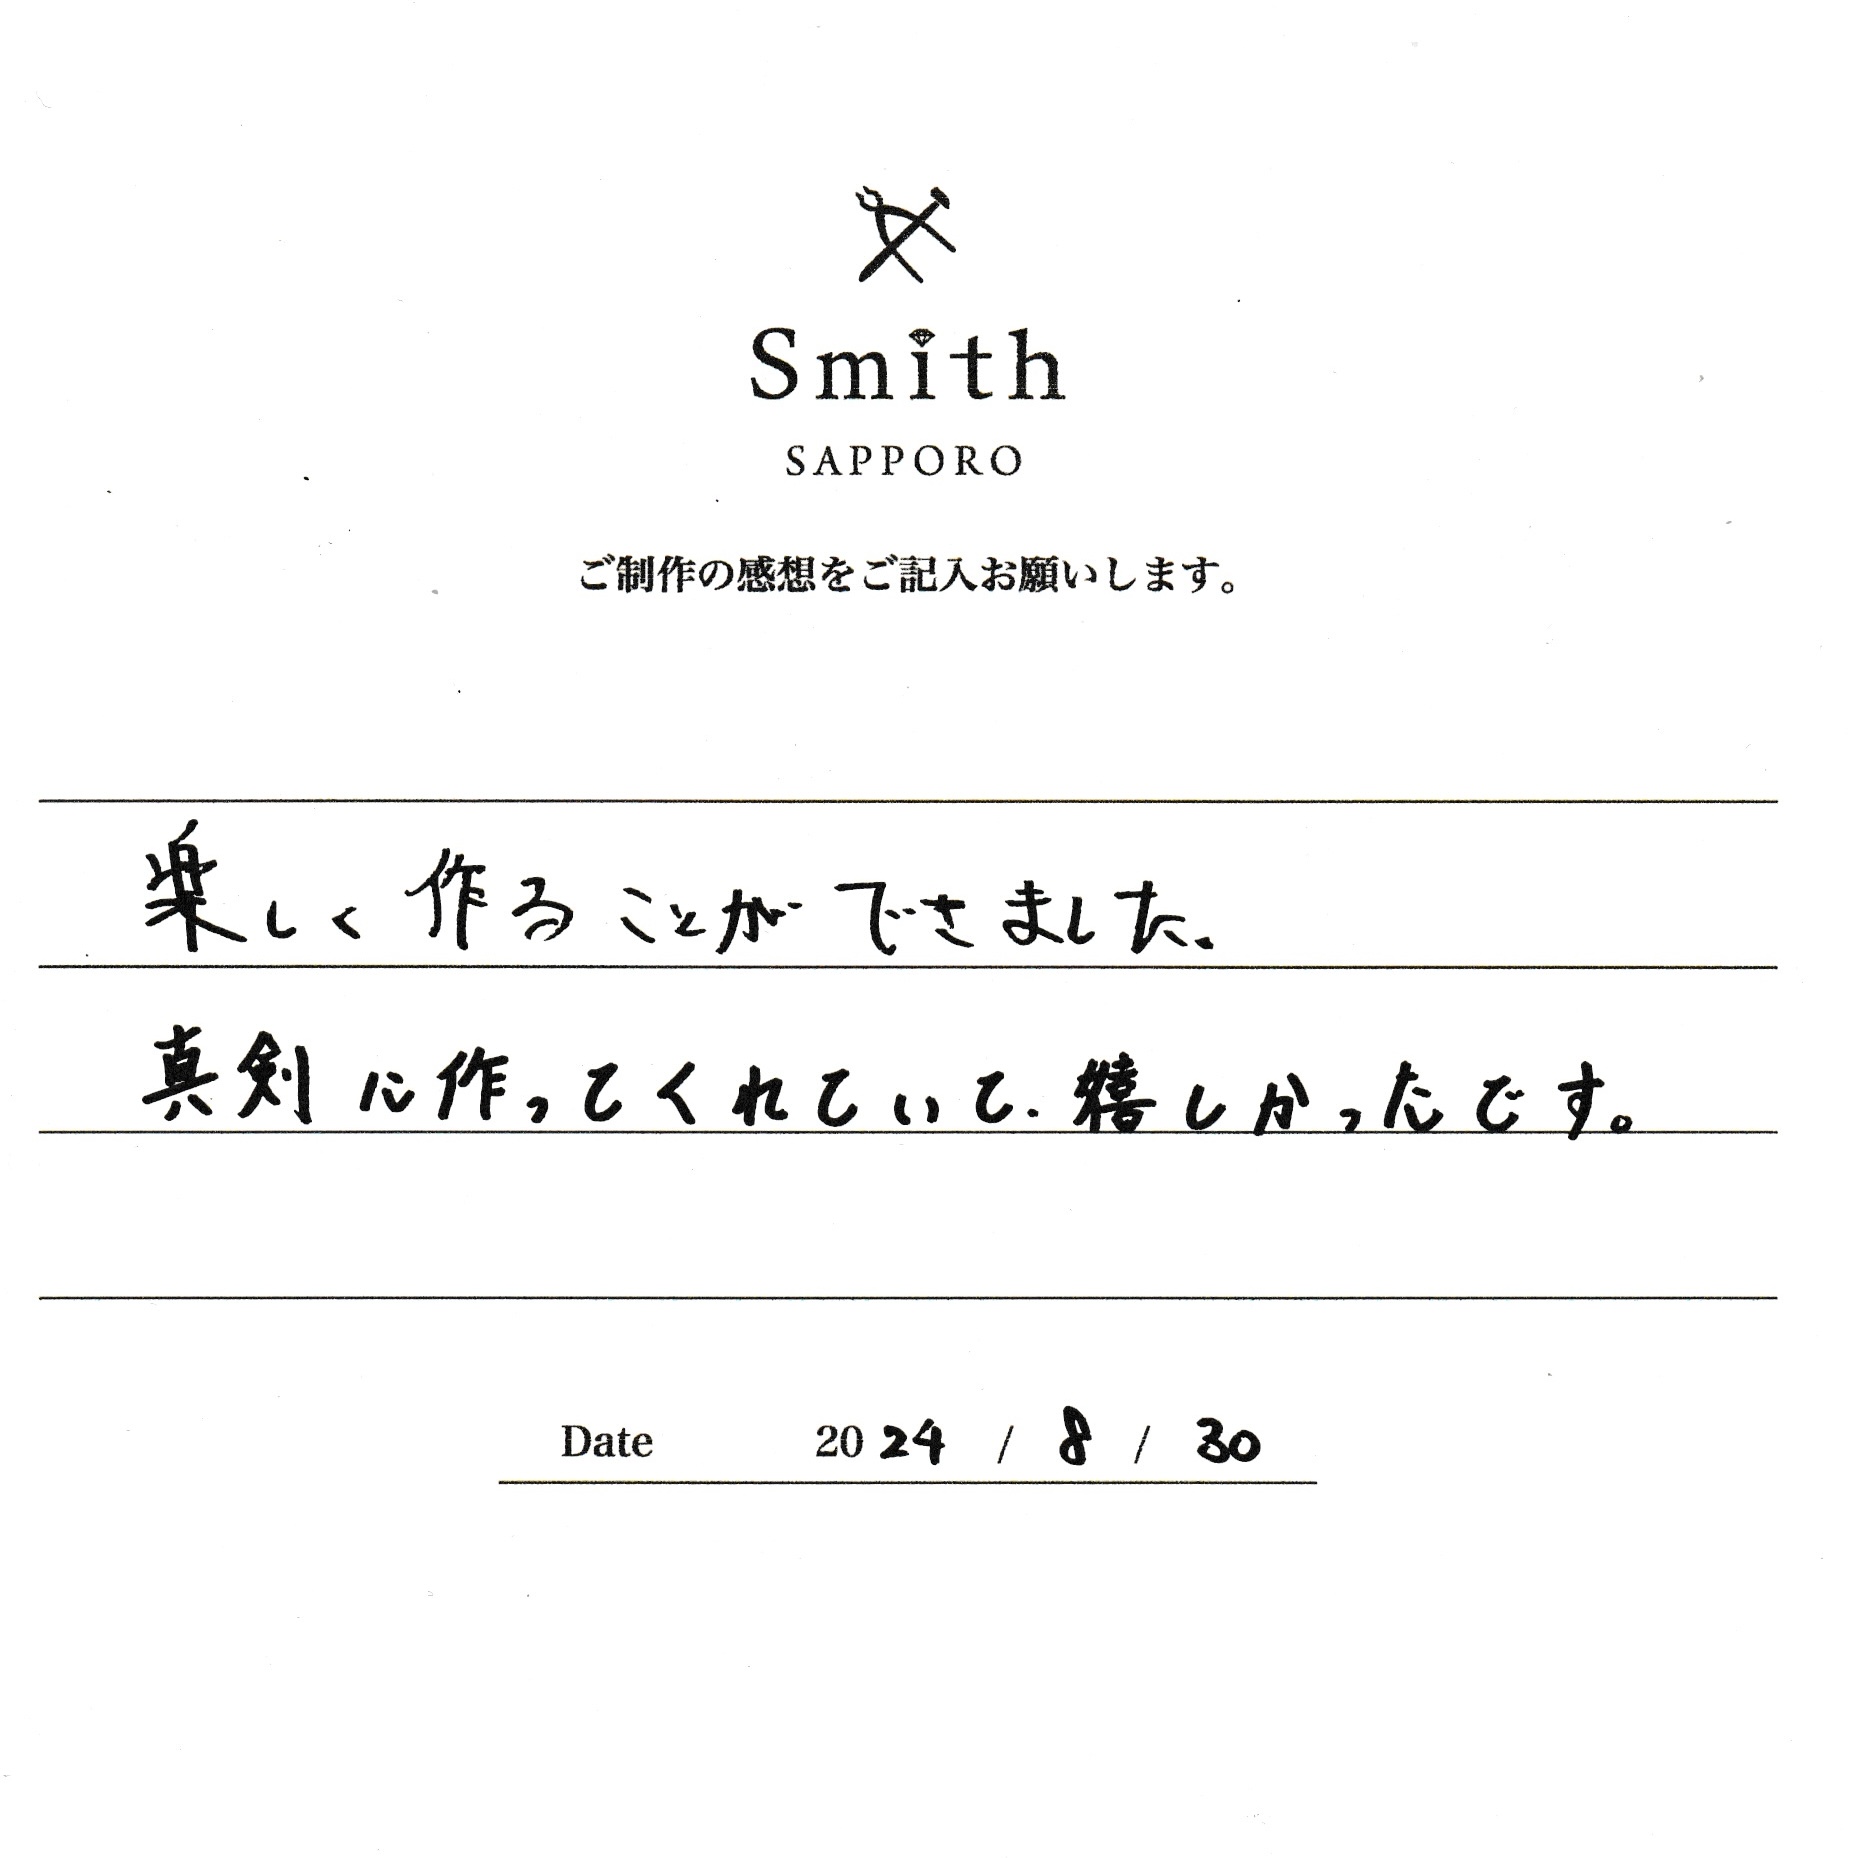 Smith
SAPPORO
ご制作の感想をご記入お願いします。
楽しく作ることができました.
真剣に作ってくれていて.嬉しかったです。
Date 2024 / 8 / 30